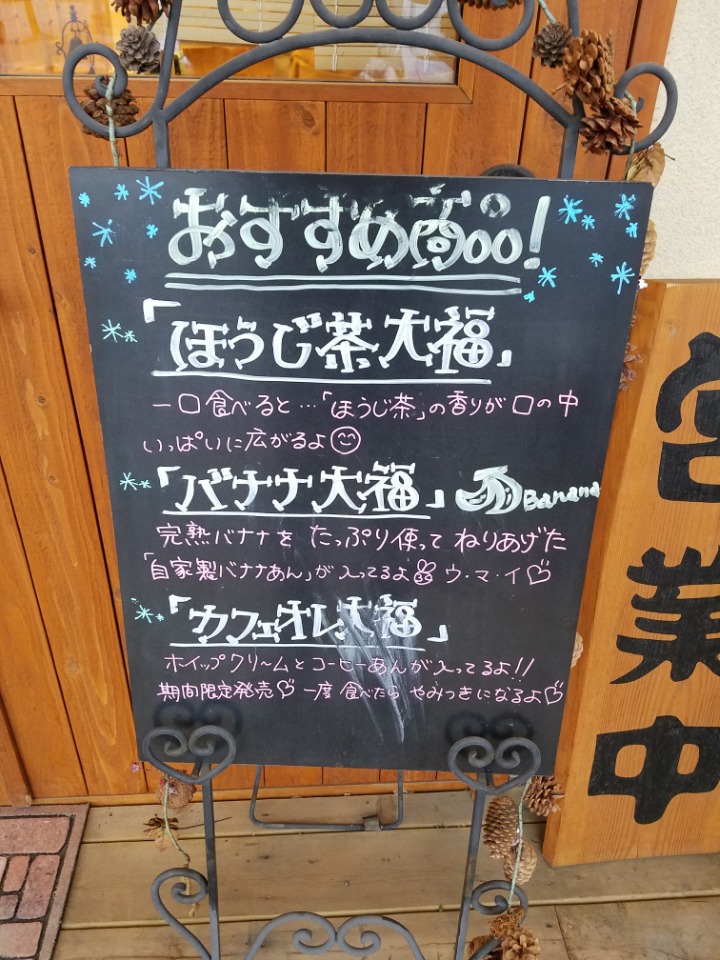 おすすめ商品!
「ほうじ茶大福」
一口食べると…「ほうじ茶」の香りが口の中
いっぱいに広がるよ
「バナナ大福」 Banana
完熟バナナを たっぷり使って ねりあげた
「自家製バナナあん」が入ってるよ ウ・マ・イ♡
「カフェオレ大福」
ホイップクリームとコーヒーあんが入ってるよ!!
期間限定発売♡ 一度 食べたら やみつきになるよ♡
営業中